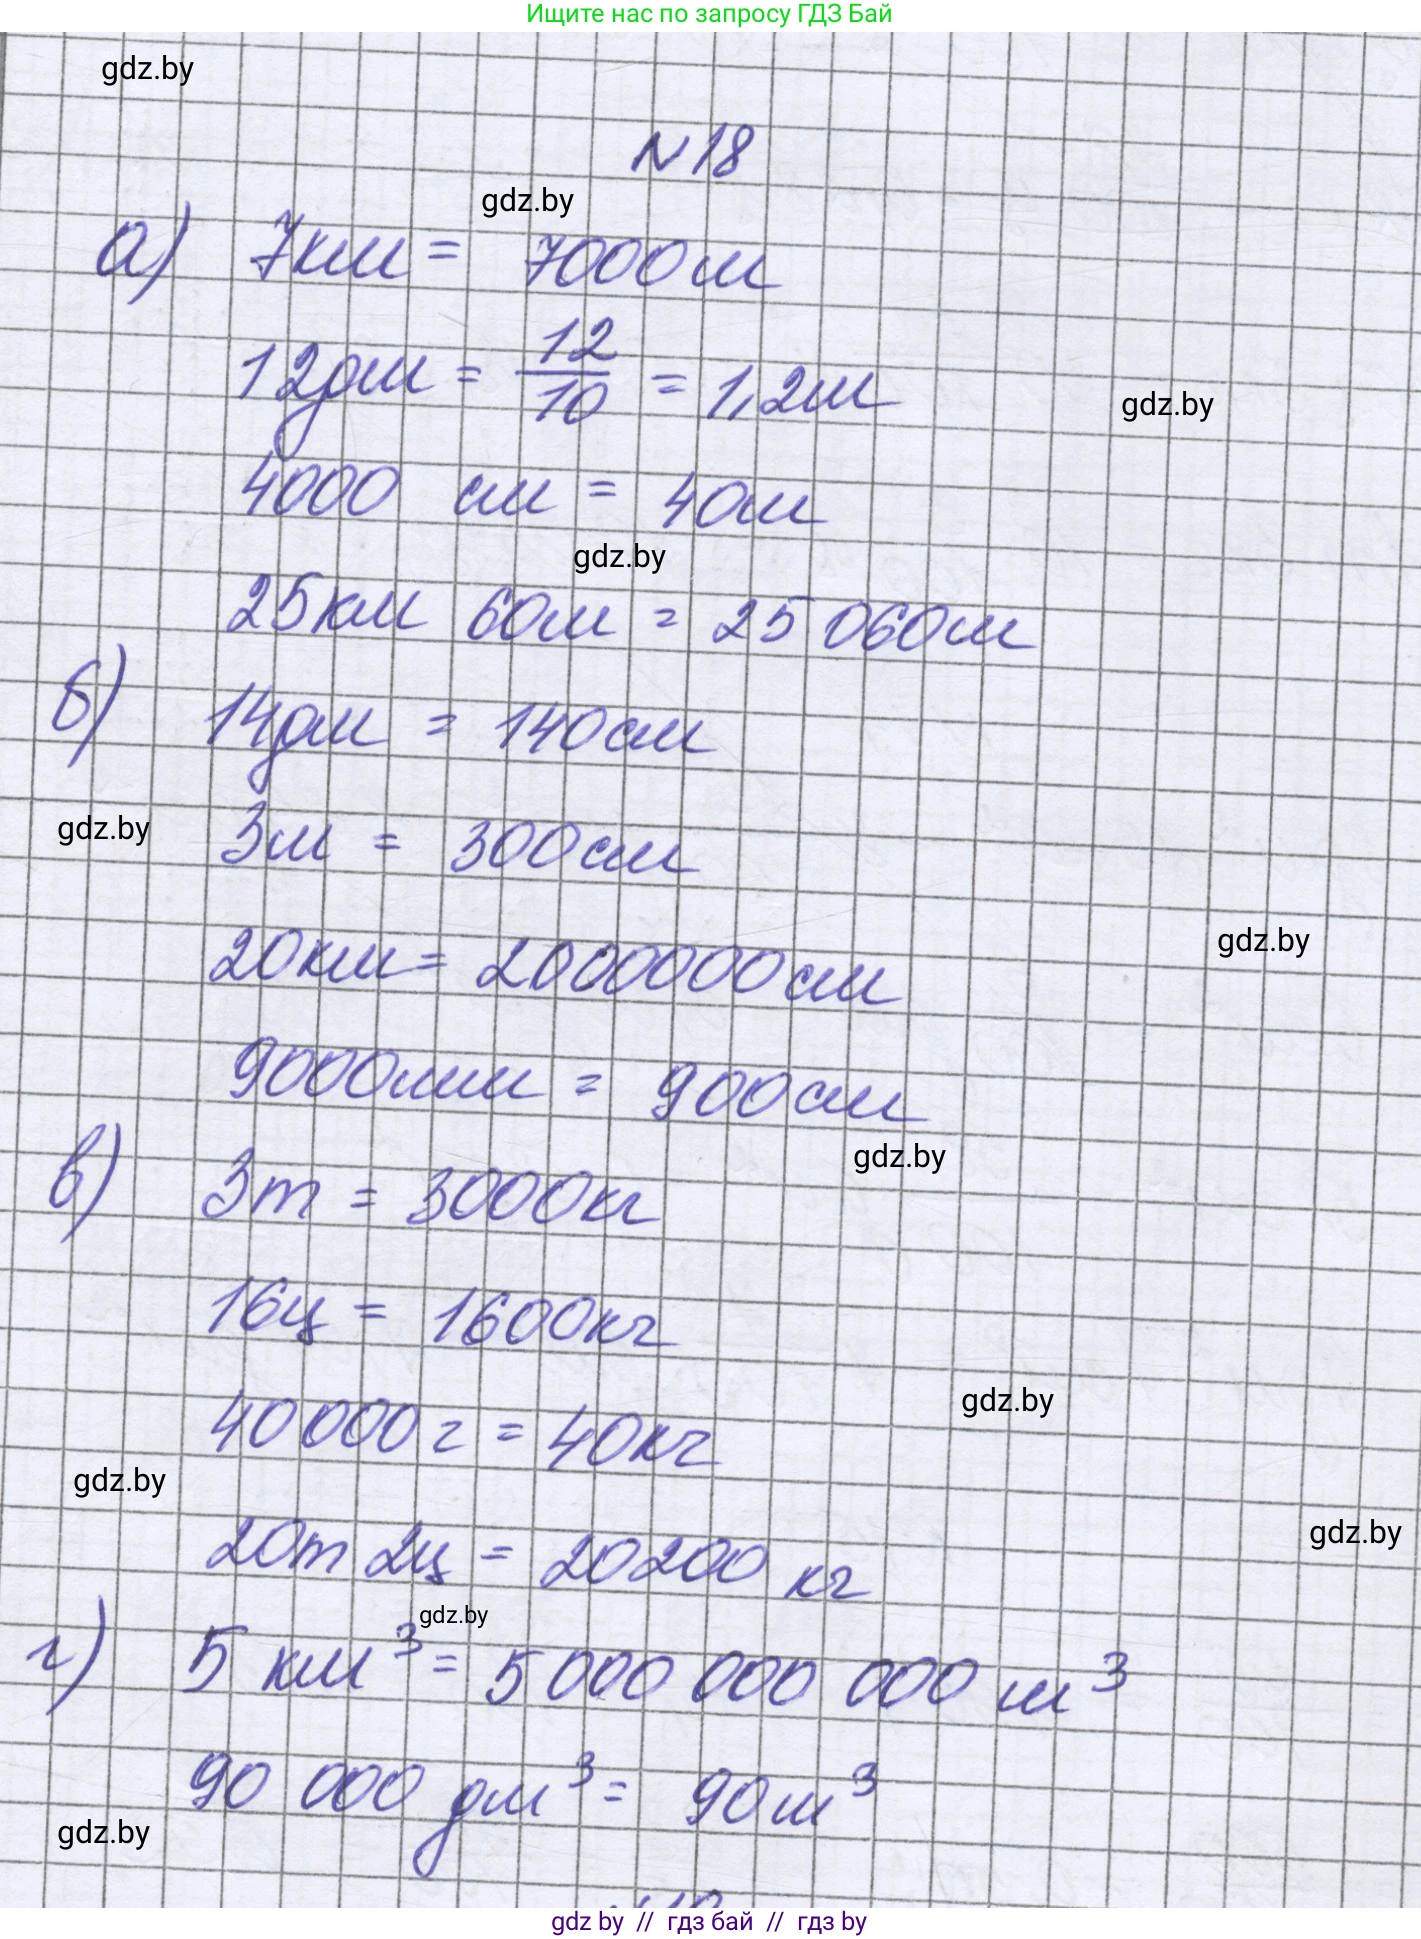 Ищите нас по запросу ГДЗ Бай
gdz.by
N18
gdz.by
а) 7км = 7000м
12дм = 12/10 = 1,2м
gdz.by
4000 см = 40м
gdz.by
25км 60м = 25 060м
б) 14дм = 140см
gdz.by
3м = 300см
gdz.by
20км = 2000000см
9000мм = 900см
gdz.by
в) 3т = 3000кг
16ц = 1600кг
gdz.by
40 000 г = 40кг
gdz.by
gdz.by
20т 2ц = 20200 кг
gdz.by
г) 5 км³ = 5 000 000 000 м³
90 000 дм³ = 90м³
gdz.by
gdz by // гдз бай // гдз by